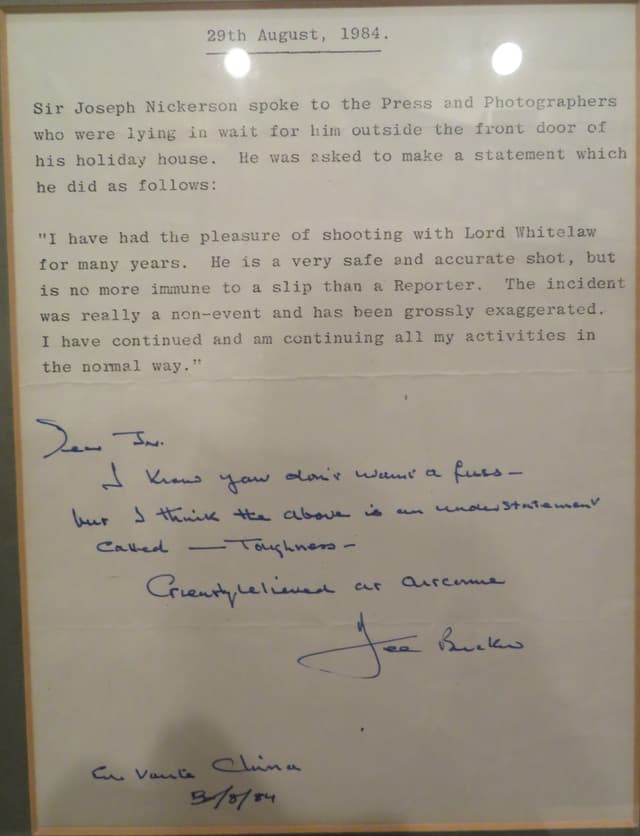 29th August, 1984.
Sir Joseph Nickerson spoke to the Press and Photographers
who were lying in wait for him outside the front door of
his holiday house. He was asked to make a statement which
he did as follows:
"I have had the pleasure of shooting with Lord Whitelaw
for many years. He is a very safe and accurate shot, but
is no more immune to a slip than a Reporter. The incident
was really a non-event and has been grossly exaggerated.
I have continued and am continuing all my activities in
the normal way."
Dear
I know you don't want a fuss —
but I think the above is an understatement
called — Toughness —
Greatly relieved at outcome
China